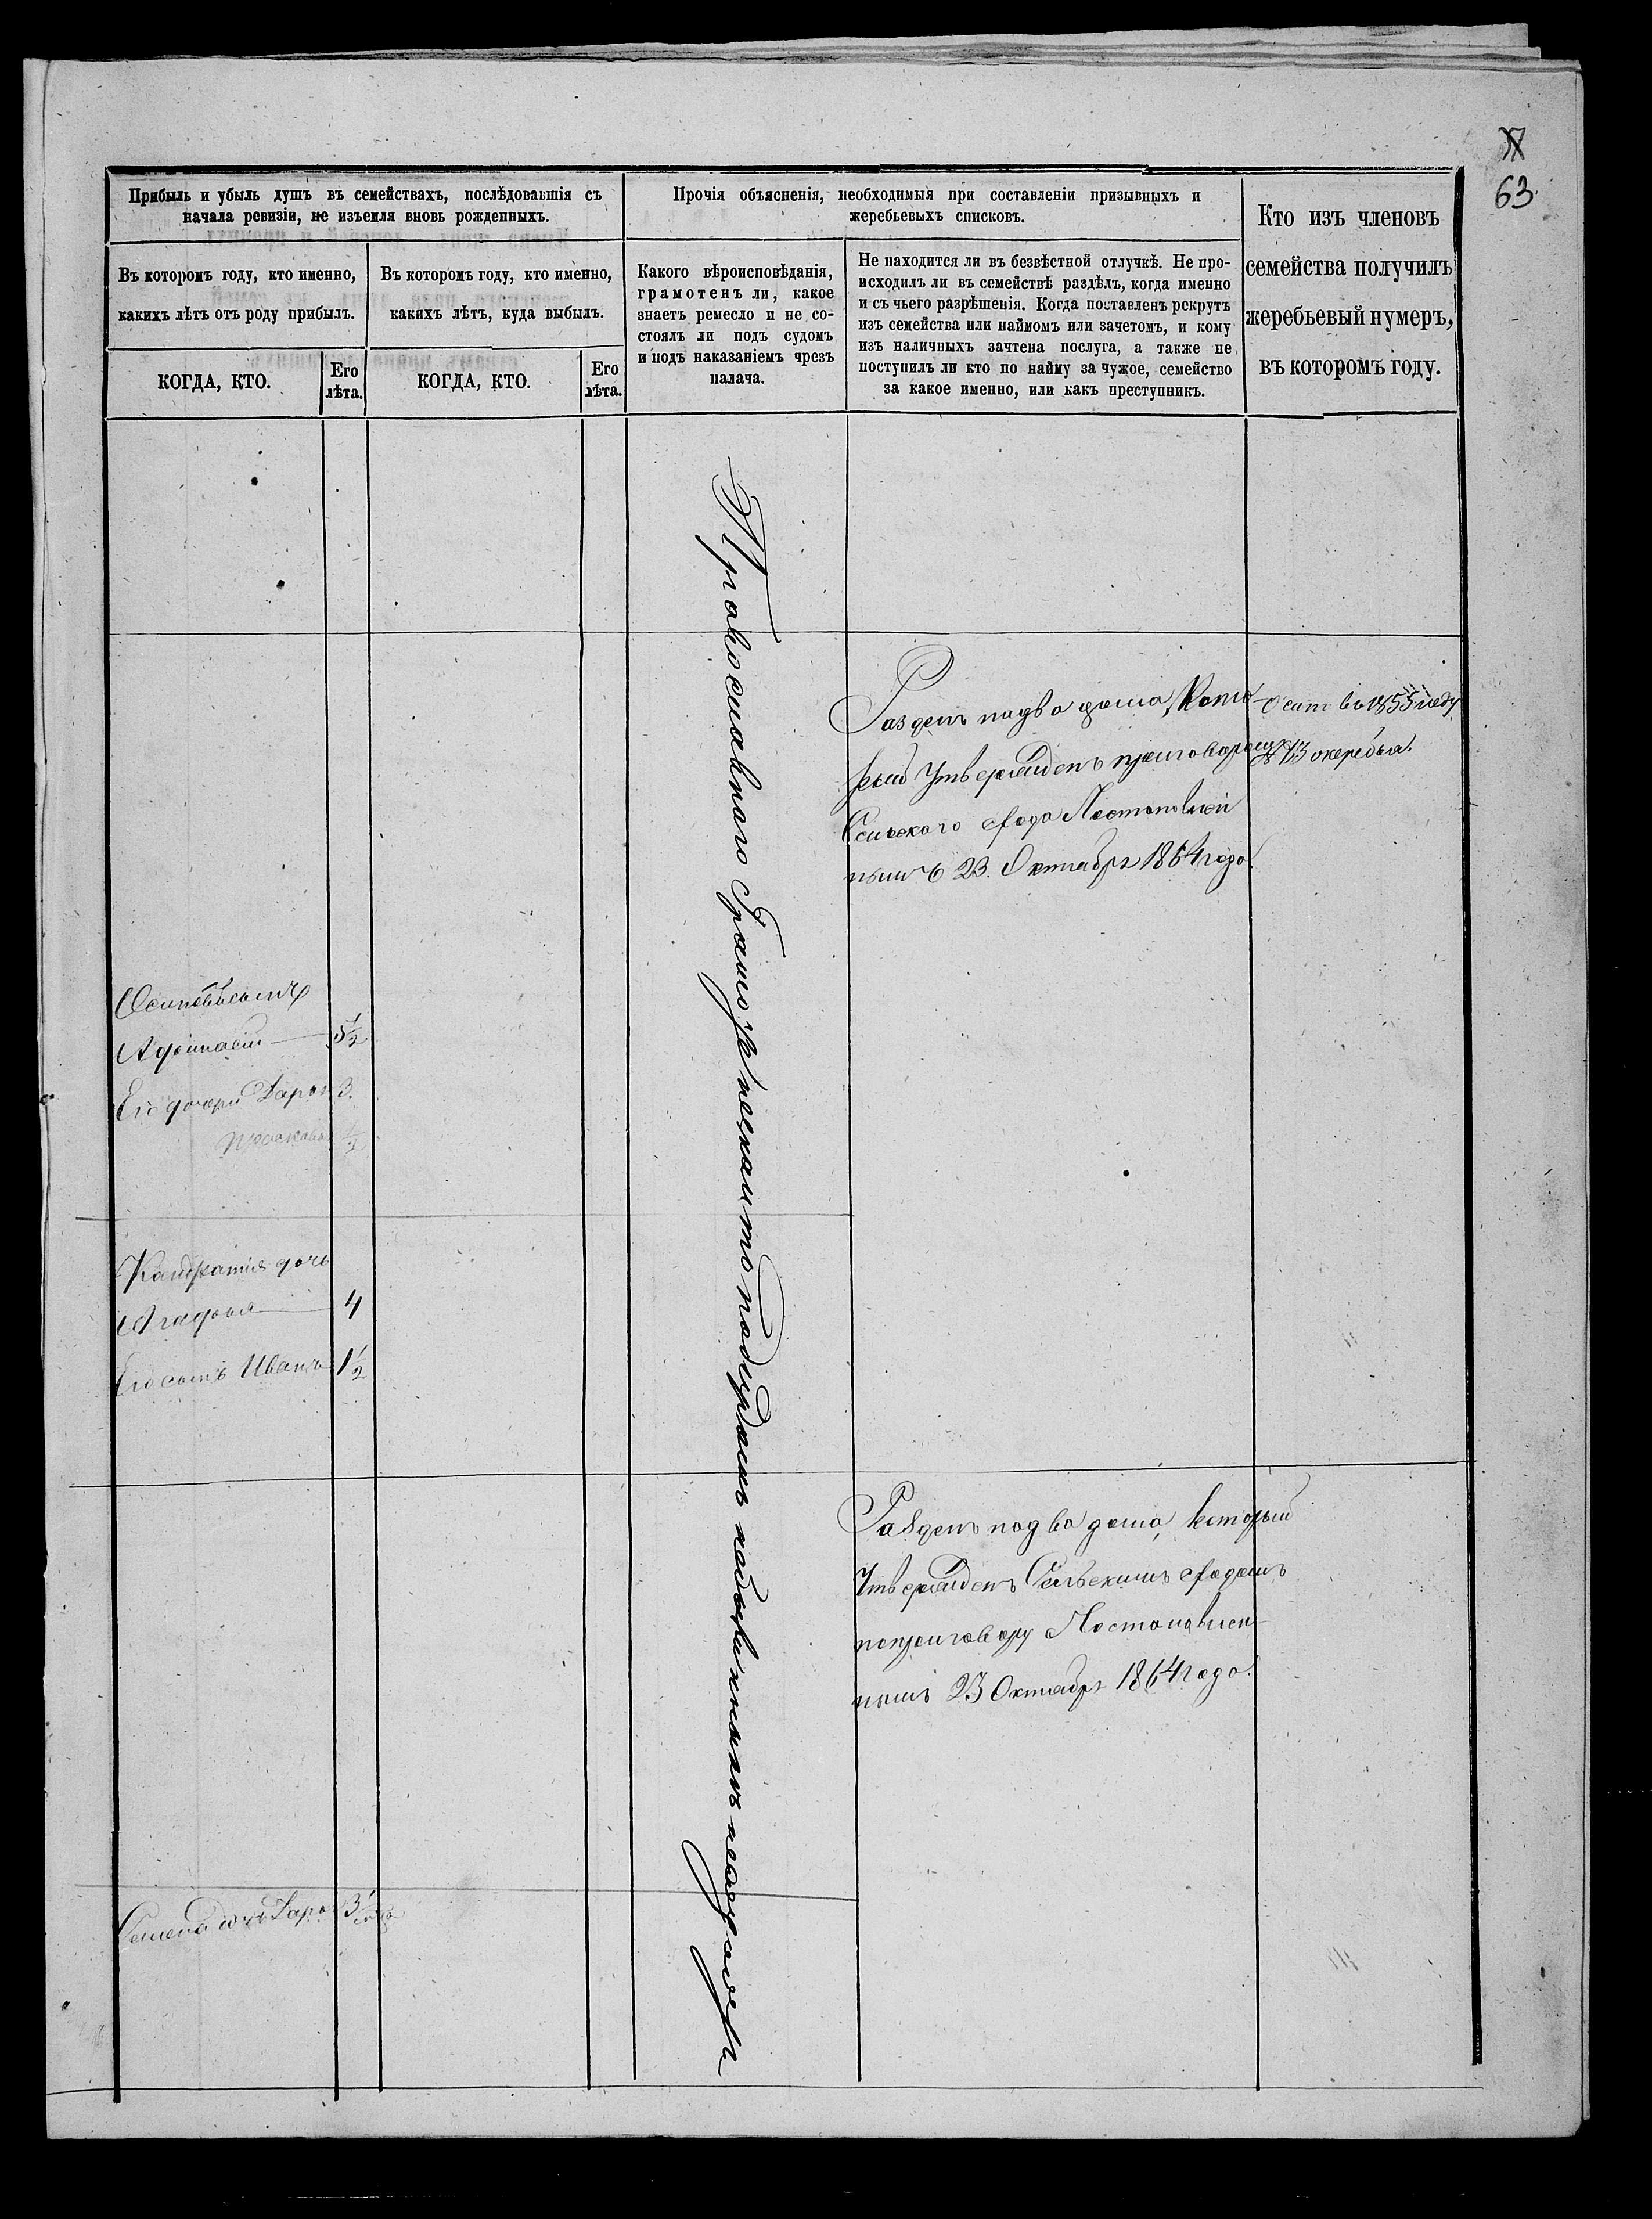 63
Прибыль и убыль душъ въ семействахъ, послѣдовавшія съ
начала ревизіи, не изъемля вновь рожденныхъ.
Въ которомъ году, кто именно,
какихъ лѣтъ отъ роду прибылъ.
КОГДА, КТО.
Его
лѣта.
Въ которомъ году, кто именно,
какихъ лѣтъ, куда выбылъ.
КОГДА, КТО.
Его
лѣта.
Прочія объясненія, необходимыя при составленіи призывныхъ и
жеребьевыхъ списковъ.
Какого вѣроисповѣданія,
грамотенъ ли, какое
знаетъ ремесло и не со-
стоялъ ли подъ судомъ
и подъ наказаніемъ чрезъ
палача.
Не находится ли въ безвѣстной отлучкѣ. Не про-
исходилъ ли въ семействѣ раздѣлъ, когда именно
и съ чьего разрѣшенія. Когда поставленъ рекрутъ
изъ семейства или наймомъ или зачетомъ, и кому
изъ наличныхъ зачтена послуга, а также не
поступилъ ли кто по найму за чужое, семейство
за какое именно, или какъ преступникъ.
Кто изъ членовъ
семейства получилъ
жеребьевый нумеръ,
въ которомъ году.
Православнаго Грамотѣ
Разделъ на два дома, Кото-
рый Утвержденъ приговоромъ
Сельского схода Постановлен
нымъ 23. Октября 1864 года.
Осип во 1855 году
№ 13 жеребья.
Осиповъ сынъ
Афонасий 5 1/2
Его дочери Дарья 3.
Прасковья 1/2
Кандратия дочь
Агафья 4
Его сынъ Иванъ 1 1/2
Разделъ на два дома, который
Утвержденъ Сельскимъ сходомъ
по приговору Постановлен-
нымъ 23 Октября 1864 года.
Семена дочь Дарья 3